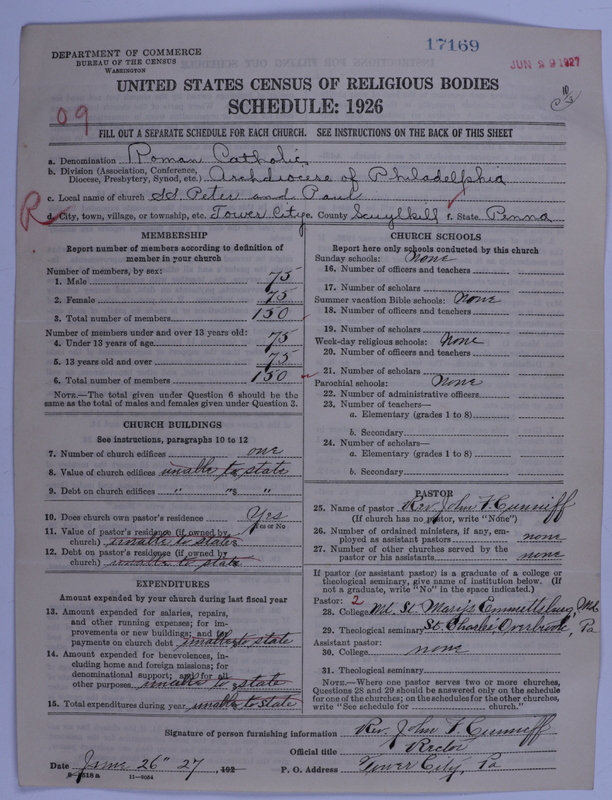 17169
JUN 29 1927
DEPARTMENT OF COMMERCE
BUREAU OF THE CENSUS
WASHINGTON
UNITED STATES CENSUS OF RELIGIOUS BODIES
SCHEDULE: 1926
09
FILL OUT A SEPARATE SCHEDULE FOR EACH CHURCH. SEE INSTRUCTIONS ON THE BACK OF THIS SHEET
a. Denomination Roman Catholic
b. Division (Association, Conference, Diocese, Presbytery, Synod, etc.) Archdiocese of Philadelphia
c. Local name of church SS. Peter and Paul
R d. City, town, village, or township, etc. Tower City e. County Scuylkill f. State Penna
MEMBERSHIP
Report number of members according to definition of member in your church
Number of members, by sex:
1. Male 75
2. Female 75
3. Total number of members 150
Number of members under and over 13 years old:
4. Under 13 years of age 75
5. 13 years old and over 75
6. Total number of members 150
NOTE.—The total given under Question 6 should be the same as the total of males and females given under Question 3.
CHURCH BUILDINGS
See instructions, paragraphs 10 to 12
7. Number of church edifices one
8. Value of church edifices unable to state
9. Debt on church edifices " " "
10. Does church own pastor's residence Yes
Yes or No
11. Value of pastor's residence (if owned by church) unable to state
12. Debt on pastor's residence (if owned by church) unable to state
EXPENDITURES
Amount expended by your church during last fiscal year
13. Amount expended for salaries, repairs, and other running expenses; for improvements or new buildings; and for payments on church debt unable to state
14. Amount expended for benevolences, including home and foreign missions; for denominational support; and for all other purposes unable to state
15. Total expenditures during year unable to state
CHURCH SCHOOLS
Report here only schools conducted by this church
Sunday schools: None
16. Number of officers and teachers
17. Number of scholars
Summer vacation Bible schools: None
18. Number of officers and teachers
19. Number of scholars
Week-day religious schools: None
20. Number of officers and teachers
21. Number of scholars
Parochial schools: None
22. Number of administrative officers
23. Number of teachers—
a. Elementary (grades 1 to 8)
b. Secondary
24. Number of scholars—
a. Elementary (grades 1 to 8)
b. Secondary
PASTOR
25. Name of pastor Rev. John F. Cunniff
(If church has no pastor, write "None")
26. Number of ordained ministers, if any, employed as assistant pastors none
27. Number of other churches served by the pastor or his assistants none
If pastor (or assistant pastor) is a graduate of a college or theological seminary, give name of institution below. (If not a graduate, write "No" in the space indicated.)
Pastor: 2
28. College Md. St. Mary's Emmittsburg, Md.
29. Theological seminary St. Charles Overbrook, Pa
Assistant pastor:
30. College none
31. Theological seminary
NOTE.—Where one pastor serves two or more churches, Questions 28 and 29 should be answered only on the schedule for one of the churches; on the schedules for the other churches, write "See schedule for church."
Signature of person furnishing information Rev. John F. Cunniff
Official title Rector
Date June 26" 27, 192 P. O. Address Tower City, Pa
8-5518 a 11-9064